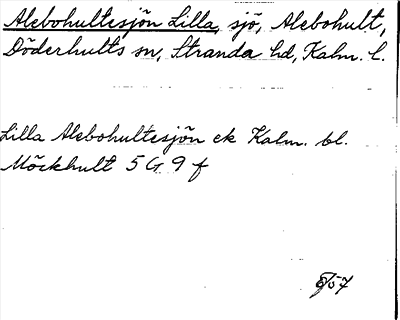 Alebohultesjön Lilla, sjö, Alebohult,
Döderhults sn, Stranda hd, Kalm. l.
Lilla Alebohultesjön ek Kalm. bl.
Möckhult 5 G 9 f
8/57